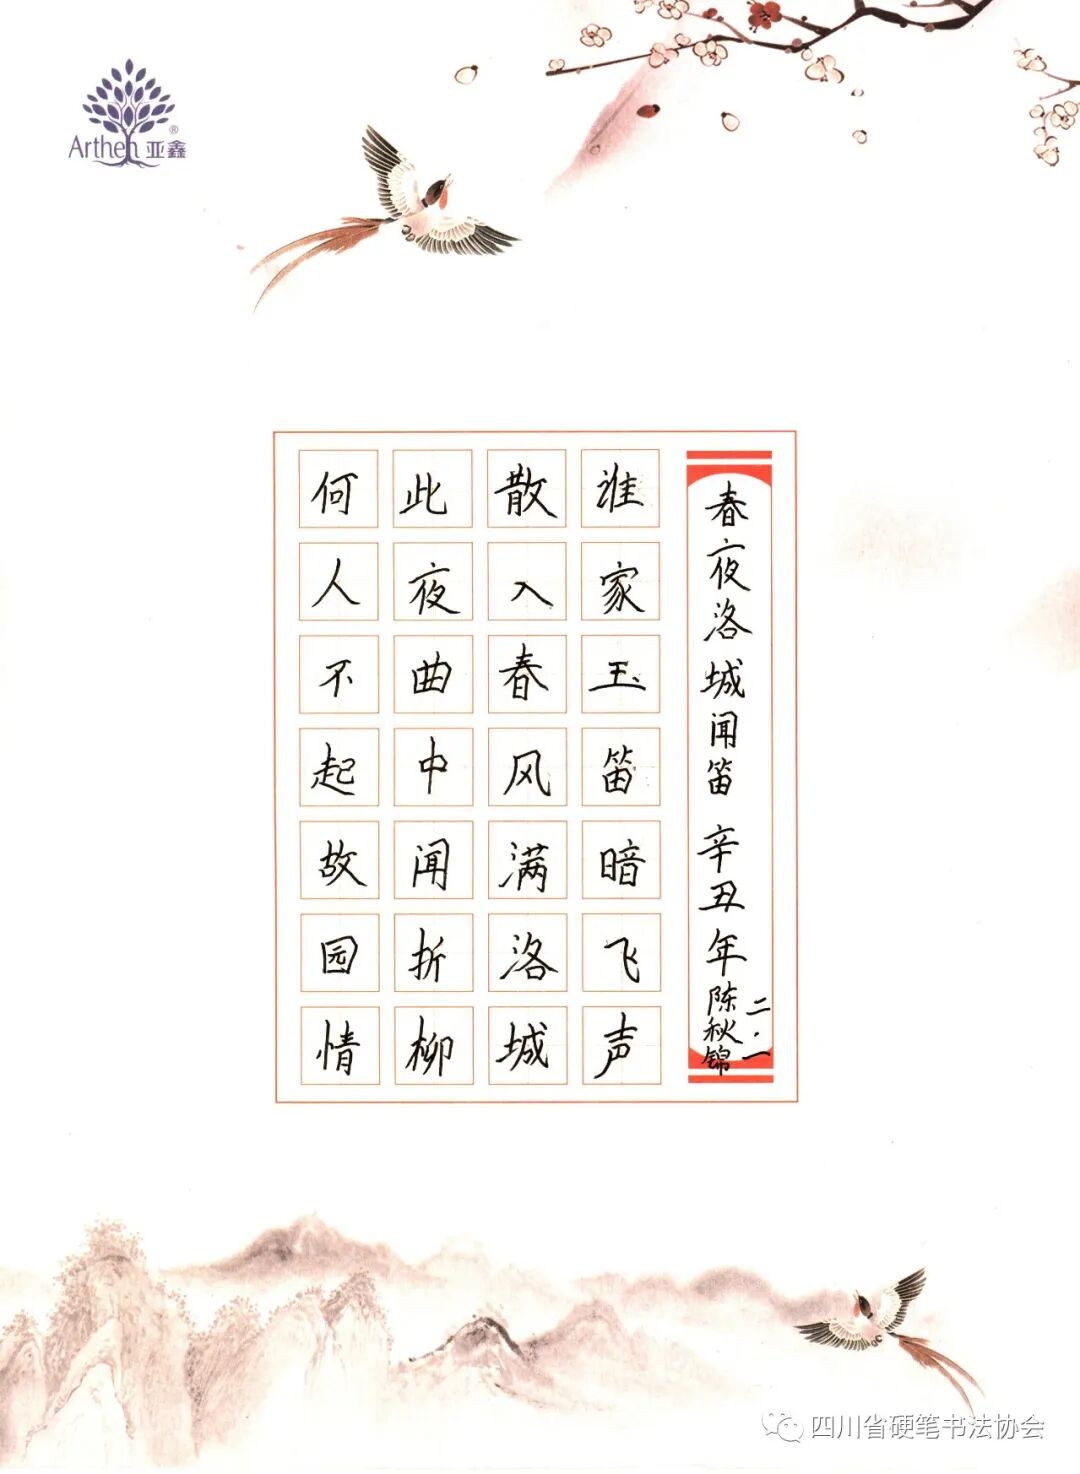 Arthen亚鑫®
春夜洛城闻笛 辛丑年陈秋锦
二.一
淮家玉笛暗飞声
散入春风满洛城
此夜曲中闻折柳
何人不起故园情
四川省硬笔书法协会